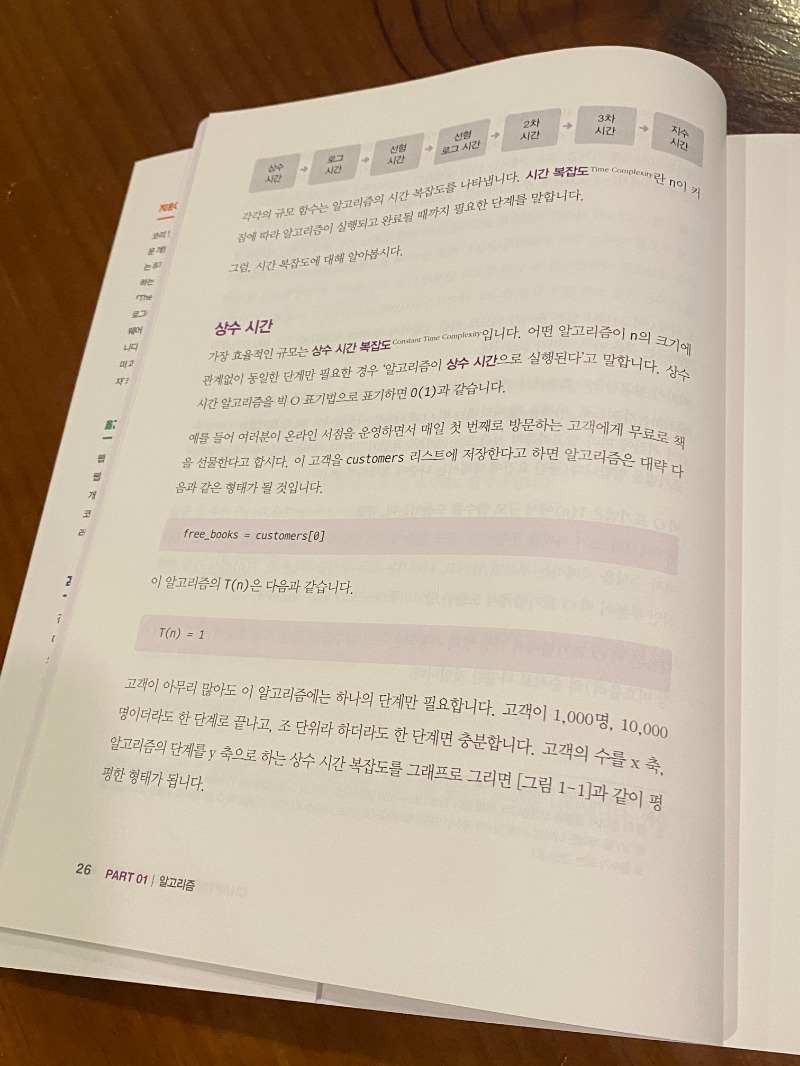 상수
시간
로그
시간
선형
시간
선형
로그 시간
2차
시간
3차
시간
지수
시간
각각의 규모 함수는 알고리즘의 시간 복잡도를 나타냅니다. 시간 복잡도Time Complexity란 n이 커
짐에 따라 알고리즘이 실행되고 완료될 때까지 필요한 단계를 말합니다.
그럼, 시간 복잡도에 대해 알아봅시다.
상수 시간
가장 효율적인 규모는 상수 시간 복잡도Constant Time Complexity입니다. 어떤 알고리즘이 n의 크기에
관계없이 동일한 단계만 필요한 경우 '알고리즘이 상수 시간으로 실행된다'고 말합니다. 상수
시간 알고리즘을 빅 O 표기법으로 표기하면 O(1)과 같습니다.
예를 들어 여러분이 온라인 서점을 운영하면서 매일 첫 번째로 방문하는 고객에게 무료로 책
을 선물한다고 합시다. 이 고객을 customers 리스트에 저장한다고 하면 알고리즘은 대략 다
음과 같은 형태가 될 것입니다.
free_books = customers[0]
이 알고리즘의 T(n)은 다음과 같습니다.
T(n) = 1
고객이 아무리 많아도 이 알고리즘에는 하나의 단계만 필요합니다. 고객이 1,000명, 10,000
명이더라도 한 단계로 끝나고, 조 단위라 하더라도 한 단계면 충분합니다. 고객의 수를 x 축,
알고리즘의 단계를 y 축으로 하는 상수 시간 복잡도를 그래프로 그리면 [그림 1-1]과 같이 평
평한 형태가 됩니다.
26 PART 01 | 알고리즘